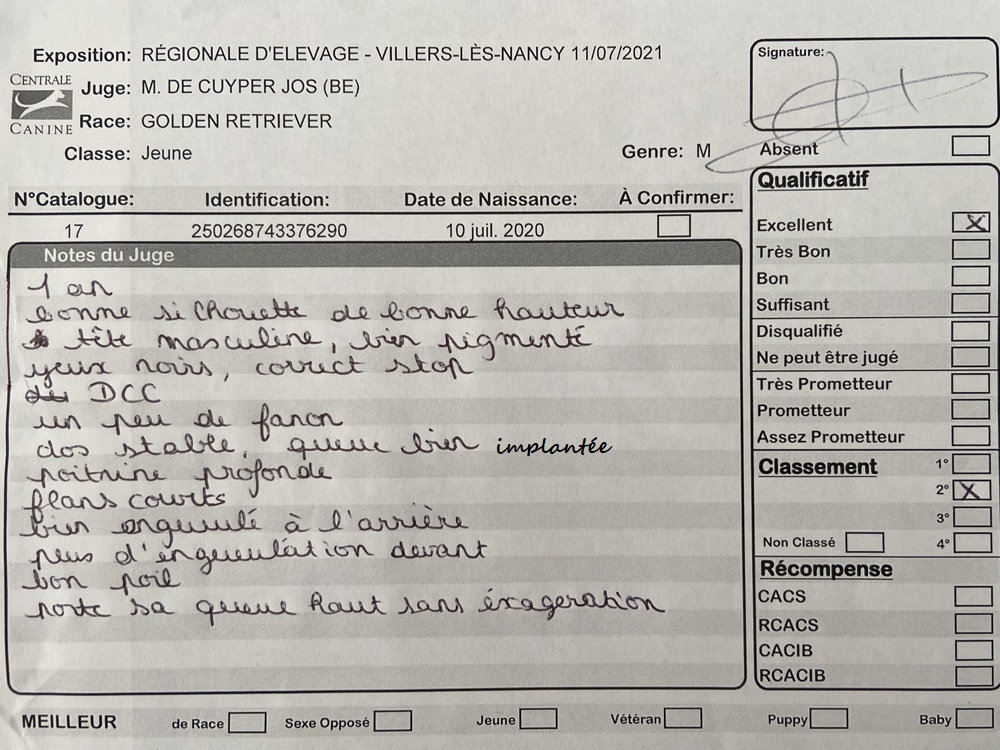 Exposition: RÉGIONALE D'ELEVAGE - VILLERS-LÈS-NANCY 11/07/2021
CENTRALE CANINE
Juge: M. DE CUYPER JOS (BE)
Race: GOLDEN RETRIEVER
Classe: Jeune
Genre: M
Signature:
Absent
N°Catalogue: Identification: Date de Naissance: À Confirmer:
17 250268743376290 10 juil. 2020
Notes du Juge
1 an
bonne silhouette de bonne hauteur
tête masculine, bien pigmenté
yeux noirs, correct stop
DCC
un peu de fanon
dos stable, queue bien implantée
poitrine profonde
flans courts
bien angulé à l'arrière
peu d'angulation devant
bon poil
porte sa queue haut sans éxageration
Qualificatif
Excellent X
Très Bon
Bon
Suffisant
Disqualifié
Ne peut être jugé
Très Prometteur
Prometteur
Assez Prometteur
Classement
1°
2° X
3°
Non Classé 4°
Récompense
CACS
RCACS
CACIB
RCACIB
MEILLEUR de Race Sexe Opposé Jeune Vétéran Puppy Baby